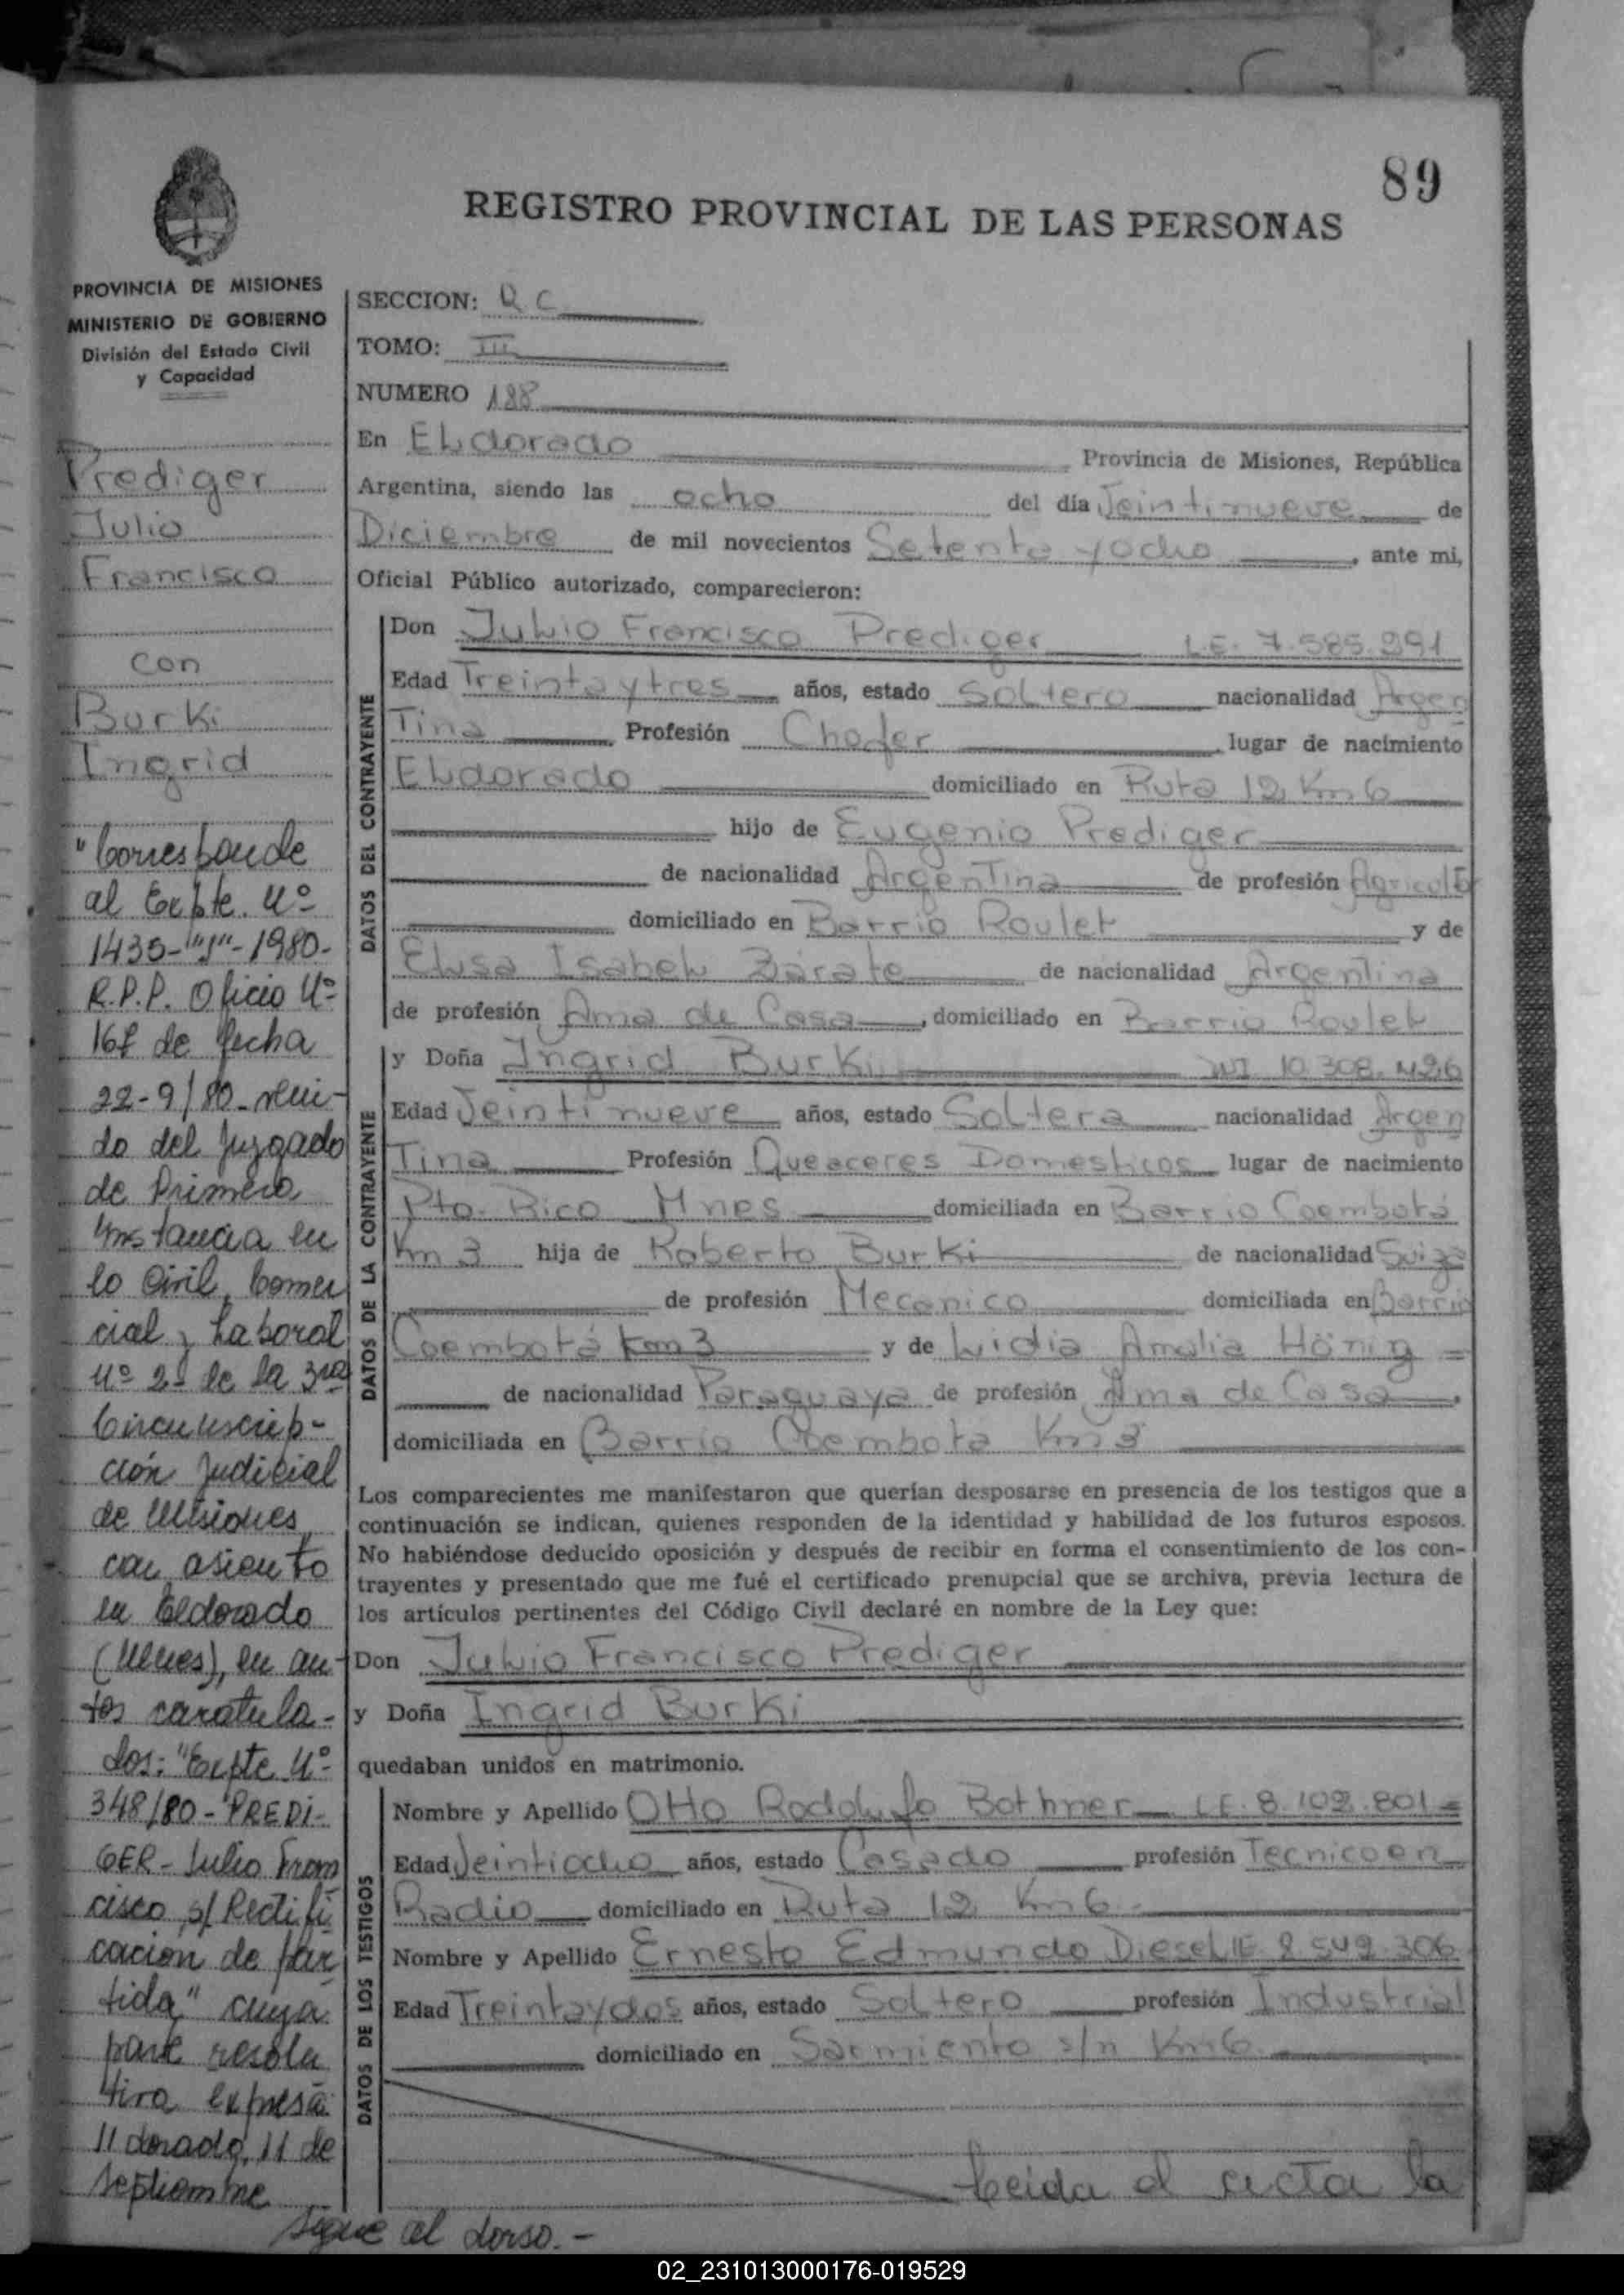 89
REGISTRO PROVINCIAL DE LAS PERSONAS
PROVINCIA DE MISIONES
MINISTERIO DE GOBIERNO
División del Estado Civil
y Capacidad
Prediger
Julio
Francisco
con
Burki
Ingrid
"Corresponde
al Expte. Nº
1435-"J"-1980-
R.P.P. Oficio Nº
168 de fecha
22-9/80- remi-
do del Juzgado
de Primera
Instancia en
lo Civil, Comer
cial y Laboral
Nº 2 de la 3ra
Circunscrip-
ción Judicial
de Misiones
con asiento
en Eldorado
(Mnes), en au-
tos caratula-
dos: "Expte Nº
348/80-"PREDI-
GER- Julio Fran
cisco s/ Rectifi
cación de par
tida" cuya
parte resolu
tiva expresa:
//dorado, 11 de
septiembre
sigue al dorso.-
SECCION: R C
TOMO: III
NUMERO 188
En ELdorado Provincia de Misiones, República
Argentina, siendo las ocho del día Veintinueve de
Diciembre de mil novecientos Setenta y ocho, ante mi,
Oficial Público autorizado, comparecieron:
DATOS DEL CONTRAYENTE
Don Julio Francisco Prediger LE. 7.585.991
Edad Treinta y tres años, estado SoLtero nacionalidad Argen
Tina Profesión Chofer, lugar de nacimiento
ELdorado domiciliado en Ruta 12 Km 6
hijo de Eugenio Prediger
de nacionalidad Argentina de profesión Agricult
domiciliado en Barrio Roulet y de
Elisa Isabel Zárate de nacionalidad Argentina
de profesión Ama de Casa, domiciliado en Barrio Roulet
DATOS DE LA CONTRAYENTE
y Doña Ingrid Burki DNI 10.308.426
Edad Veintinueve años, estado SoLtera nacionalidad Argen
Tina Profesión Queaceres Domesticos lugar de nacimiento
Pto. Rico Mnes domiciliada en Barrio Coembotá
Km 3 hija de Roberto Burki de nacionalidad Suiza
de profesión Mecanico domiciliada en Barrio
Coembotá Km 3 y de Lidia Amalia Hönig =
de nacionalidad Paraguaya de profesión Ama de Casa,
domiciliada en Barrio Coembota Km 3
Los comparecientes me manifestaron que querían desposarse en presencia de los testigos que a
continuación se indican, quienes responden de la identidad y habilidad de los futuros esposos.
No habiéndose deducido oposición y después de recibir en forma el consentimiento de los con-
trayentes y presentado que me fué el certificado prenupcial que se archiva, previa lectura de
los artículos pertinentes del Código Civil declaré en nombre de la Ley que:
Don Julio Francisco Prediger
y Doña Ingrid Burki
quedaban unidos en matrimonio.
DATOS DE LOS TESTIGOS
Nombre y Apellido Otto Rodolfo Bothner LE. 8.102.801=
Edad Veintiocho años, estado Casado profesión Tecnico en
Radio domiciliado en Ruta 12 Km 6.
Nombre y Apellido Ernesto Edmundo Diesel LE 8 549 306
Edad Treinta y dos años, estado SoLtero profesión Industrial
domiciliado en Sarmiento s/n Km 6.
Leida el acta la
02_231013000176-019529